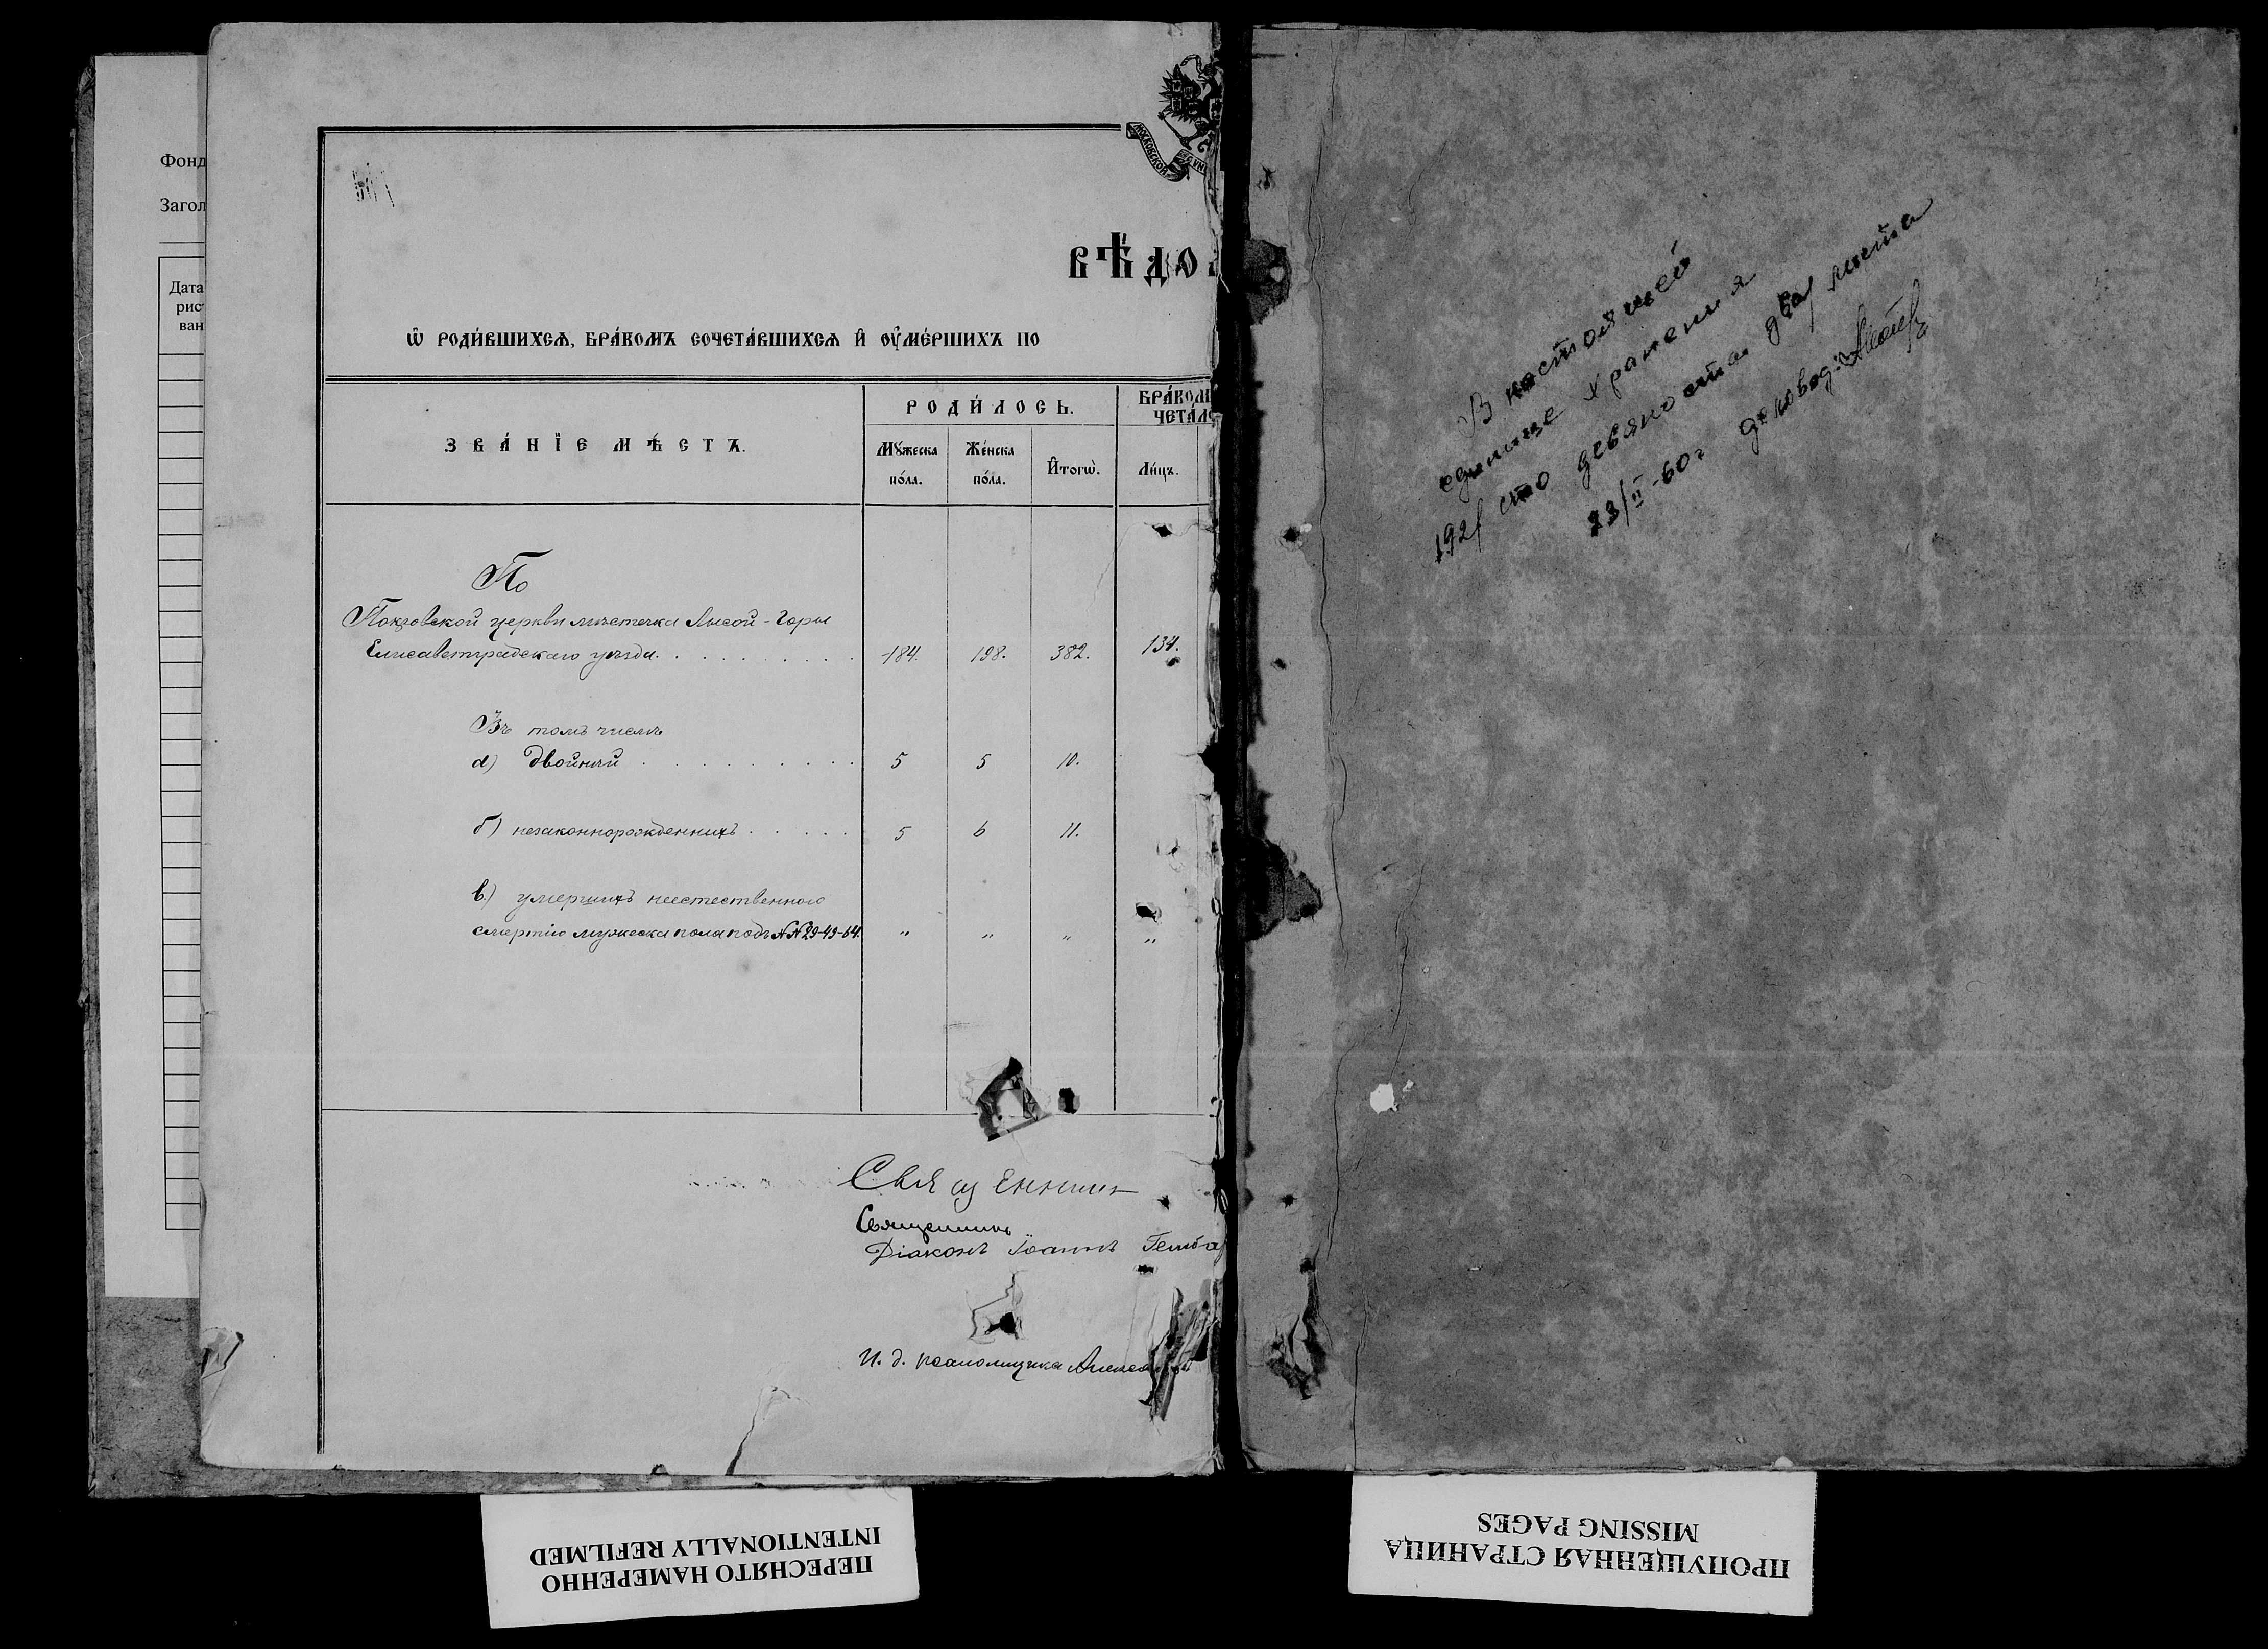 Фонд
Загол
Дата
рис
ван
МОСКОВСКОЙ
ВѢДО
Ѡ РОДИ́ВШИХСѦ, БРА́КОМЪ СОЧЕТА́ВШИХСѦ И҆ ОУ҆МЕ́РШИХЪ ПО
ЗВА́НІЕ МѢ́СТЪ.
РОДИ́ЛОСЬ.
БРА́КОМ
ЧЕТА́ЛО
Мꙋ́жеска
по́ла.
Же́нска
по́ла.
И҆тогѡ̀.
Ли́цъ.
По
Покровской церкви мѣстечка Лысой-Горы
Елисаветградскаго уѣзда. 184. 198. 382. 134.
Въ томъ числѣ
а) двойней 5 5 10.
б) незаконнорожденныхъ 5 6 11.
в) умершихъ неестественною
смертію мужеска пола подъ №№ 29-49-64. " " " "
Священник
Священникъ
Діаконъ Іоаннъ
И. д. псаломщика
В настоящей
единице хранения
192/ сто девяносто два/ листа
23/II-60 г. деловод:
ПЕРЕСНЯТО НАМЕРЕННО
INTENTIONALLY REFILMED
ПРОПУЩЕННАЯ СТРАНИЦА
MISSING PAGES